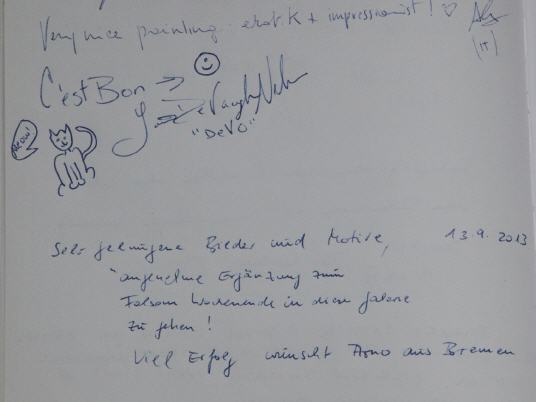 Very nice painting erotik + impressionist! ♡ Alex
(IT)
C'est Bon →
"DeVO"
Meow!
Sehr gelungene Bilder und Motive, 13.9.2013
angenehme Ergänzung zum
Folsom Wochenende in diese Galerie
zu gehen!
Viel Erfolg wünscht Arno aus Bremen